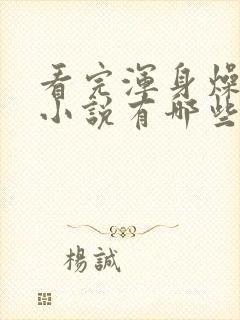 看完渾身燥
小說有哪些
楊誠